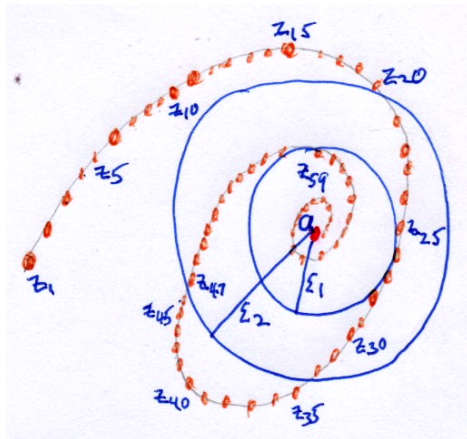 z15
z20
z10
z5
z59
a
z25
z1
z47
z45
ε1
ε2
z30
z40
z35